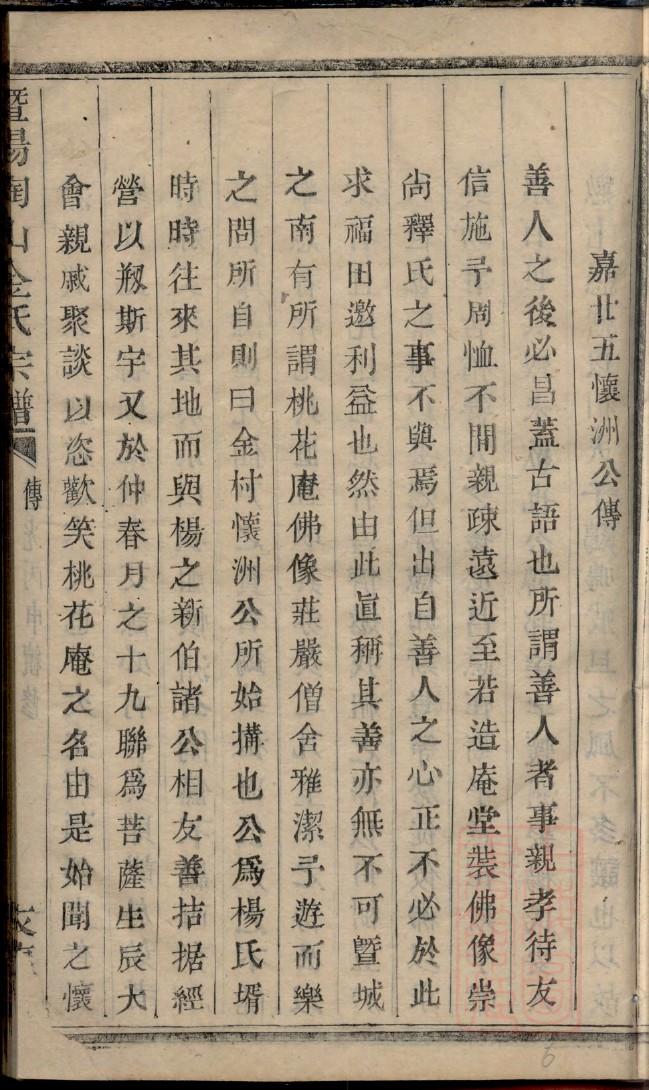 嘉廿五懷洲公傳
善人之後必昌蓋古語也所謂善人者事親孝待友
信施予周恤不間親疎遠近至若造庵堂裝佛像崇
尚釋氏之事不與焉但出自善人之心正不必於此
求福田邀利益也然由此眞稱其善亦無不可暨城
之南有所謂桃花庵佛像莊嚴僧舍雅潔予遊而樂
之問所自則曰金村懷洲公所始搆也公爲楊氏壻
時時往來其地而與楊之新伯諸公相友善拮据經
營以剏斯宇又於仲春月之十九聯爲菩薩生辰大
會親戚聚談以恣歡笑桃花庵之名由是始聞之懷
暨陽陶山金氏宗譜
傳